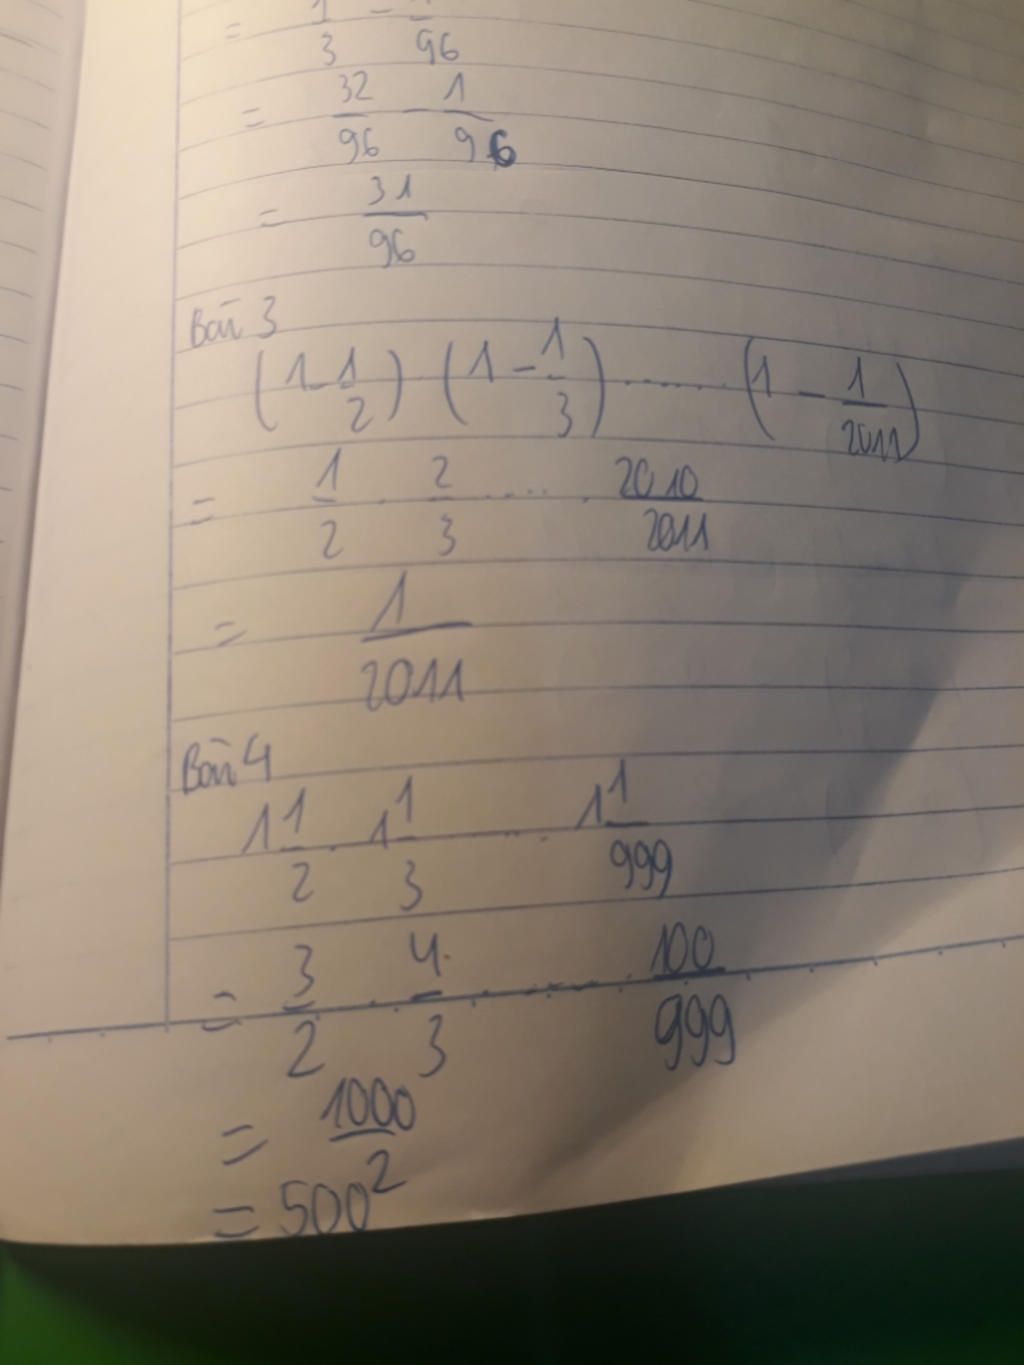 = 1/3 - 1/96
= 32/96 - 1/96
= 31/96
Bài 3
(1-1/2) . (1-1/3) ....... (1-1/2011)
= 1/2 . 2/3 ..... . 2010/2011
= 1/2011
Bài 4
1 1/2 . 1 1/3 ..... 1 1/999
= 3/2 . 4/3 . ....... 100/999
= 1000/2
= 500